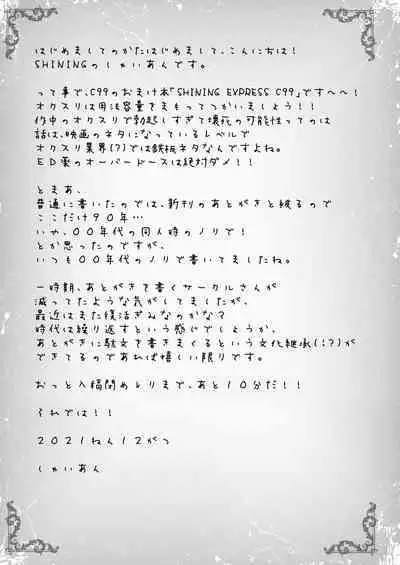 はじめましてのかたはじめまして、こんにちは！
SHININGのしゃいあんです。
って事で、C99のおまけ本「SHINING EXPRESS C99」です～～！
オクスリは用法容量てまもってつかいましょう！！
作中のオクスリで勃起しすぎて壊死の可能性ってのは
話は、映画のネタになっているレベルで
オクスリ業界(？)では鉄板ネタなんですよね。
ED薬のオーバードースは絶対ダメ！！
とまあ、
普通に書いたのでは、新刊のあとがきと被るので
ここだけ90年…
いや、00年代の同人時のノリで！
とか思ったのですが、
いつも00年代のノリで書いてましたね。
一時期、あとがきを書くサークルさんが
減ってたような気がしてましたが、
最近はまた復活ぎみなのかな？
時代は繰り返すという感じでしょうか、
あとがきに駄文を書きまくるという文化継承(！？)が
できてるのであれば嬉しい限りです。
おっと入稿閉めきりまで、あと10分だ！！
それでは！！
2021ねん12がつ
しゃいあん